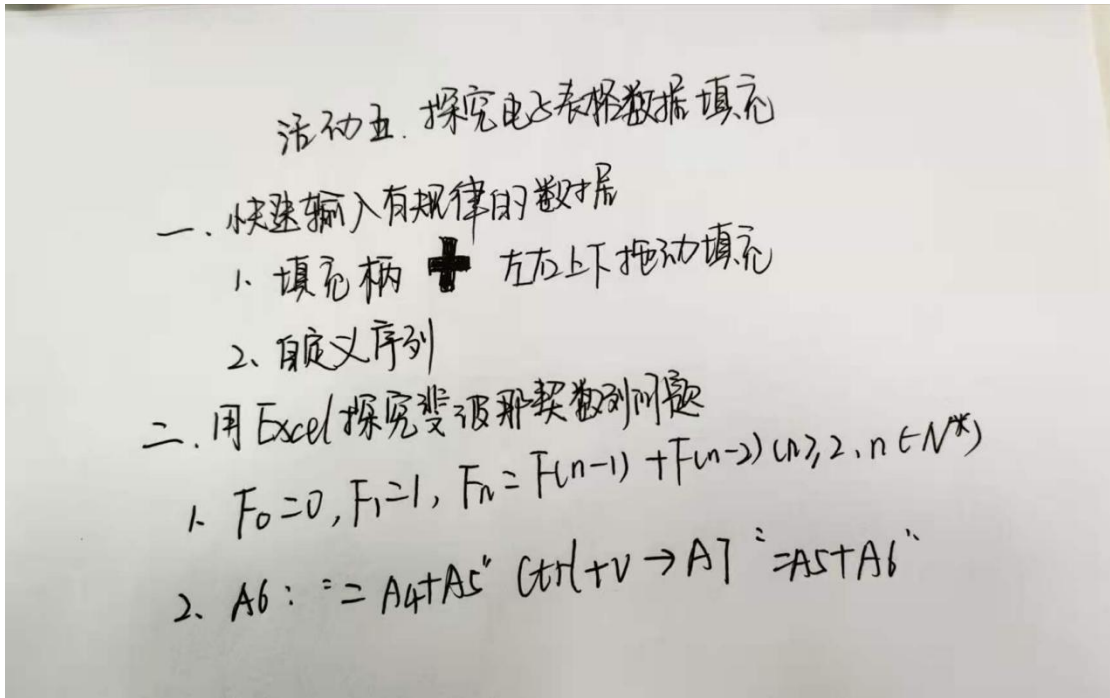 活动五. 探究电子表格数据填充
一. 快速输入有规律的数据
1. 填充柄 ✚ 左右上下拖动填充
2、自定义序列
二. 用Excel探究斐波那契数列问题
1. F₀=0, F₁=1, Fn=F(n-1)+F(n-2) (n≥2, n∈N*)
2、A6: "=A4+A5" Ctrl+V→A7 "=A5+A6"